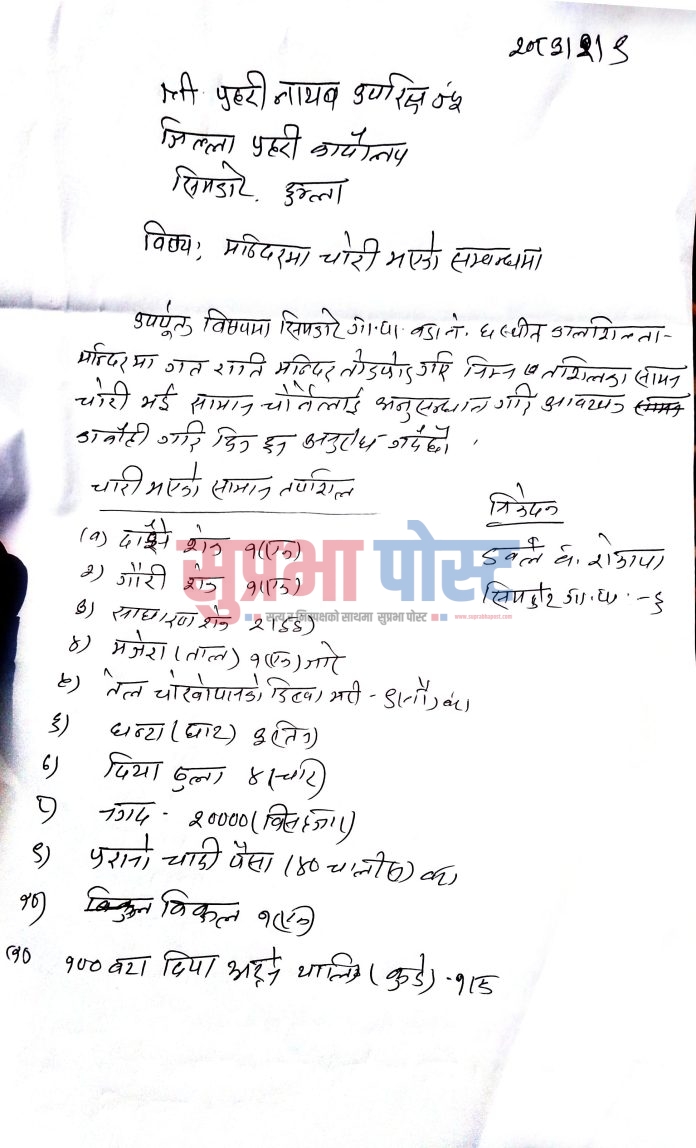 २०८३।२।९
श्री प्रहरी नायव उपरिक्षक ज्यू
जिल्ला प्रहरी कार्यालय
सिमकोट, हुम्ला
विषय; मन्दिरमा चोरी भएको सम्बन्धमा
उपर्युक्त विषयमा सिमकोट गा.पा. वडा नं.
मन्दिरमा गत राति मन्दिर तोडफोड गरि निम्न तपशिलका सामान
चोरी भई सामान चोर्नेलाई अनुसन्धान गरि आवश्यक
कार्वाही गरि दिन हुन अनुरोध गर्दछौ ।
चोरी भएको सामान तपशिल
निवेदक
१) शंख १(एक)
सिमकोट गा.पा. -६
२) गौरी शंख १(एक)
३) साधारण शंख २(दुई)
४) मजेरा (ताल) १(एक) जोर
५) तेल चोखोपानीको डिब्बा - ९(नौ) वटा
६) घन्टा (घाट) ३(तिन)
७) दिया ठुला ४ (चारि)
८) नगद - २०००० (विस हजार)
९) पुरानो चादी पैसा (४० चालीस) वटा
१०) विकुल १(एक)
११) १०० वटा दिया अट्ने थालि (कुडे) - १
सुप्रभा पोस्ट
सत्य र निष्पक्षको साथमा सुप्रभा पोस्ट
www.suprabhapost.com